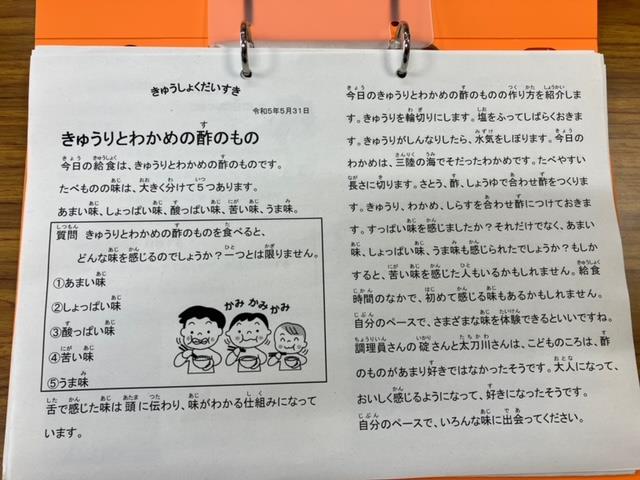 きゅうしょくだいすき
令和5年5月31日
きゅうりとわかめの酢のもの
今日の給食は、きゅうりとわかめの酢のものです。
たべものの味は、大きく分けて5つあります。
あまい味、しょっぱい味、酸っぱい味、苦い味、うま味。
質問 きゅうりとわかめの酢のものを食べると、
どんな味を感じるのでしょうか?一つとは限りません。
①あまい味
②しょっぱい味
③酸っぱい味
④苦い味
⑤うま味
かみ かみ かみ
舌で感じた味は頭に伝わり、味がわかる仕組みになって
います。
今日のきゅうりとわかめの酢のものの作り方を紹介しま
す。きゅうりを輪切りにします。塩をふってしばらくおきま
す。きゅうりがしんなりしたら、水気をしぼります。今日の
わかめは、三陸の海でそだったわかめです。たべやすい
長さに切ります。さとう、酢、しょうゆで合わせ酢をつくりま
す。きゅうり、わかめ、しらすを合わせ酢につけておきま
す。すっぱい味を感じましたか?それだけでなく、あまい
味、しょっぱい味、うま味も感じられたでしょうか?もしか
すると、苦い味を感じた人もいるかもしれません。給食
時間のなかで、初めて感じる味もあるかもしれません。
自分のペースで、さまざまな味を体験できるといいですね。
調理員さんの碇さんと太刀川さんは、こどものころは、酢
のものがあまり好きではなかったそうです。大人になって、
おいしく感じるようになって、好きになったそうです。
自分のペースで、いろんな味に出会ってください。